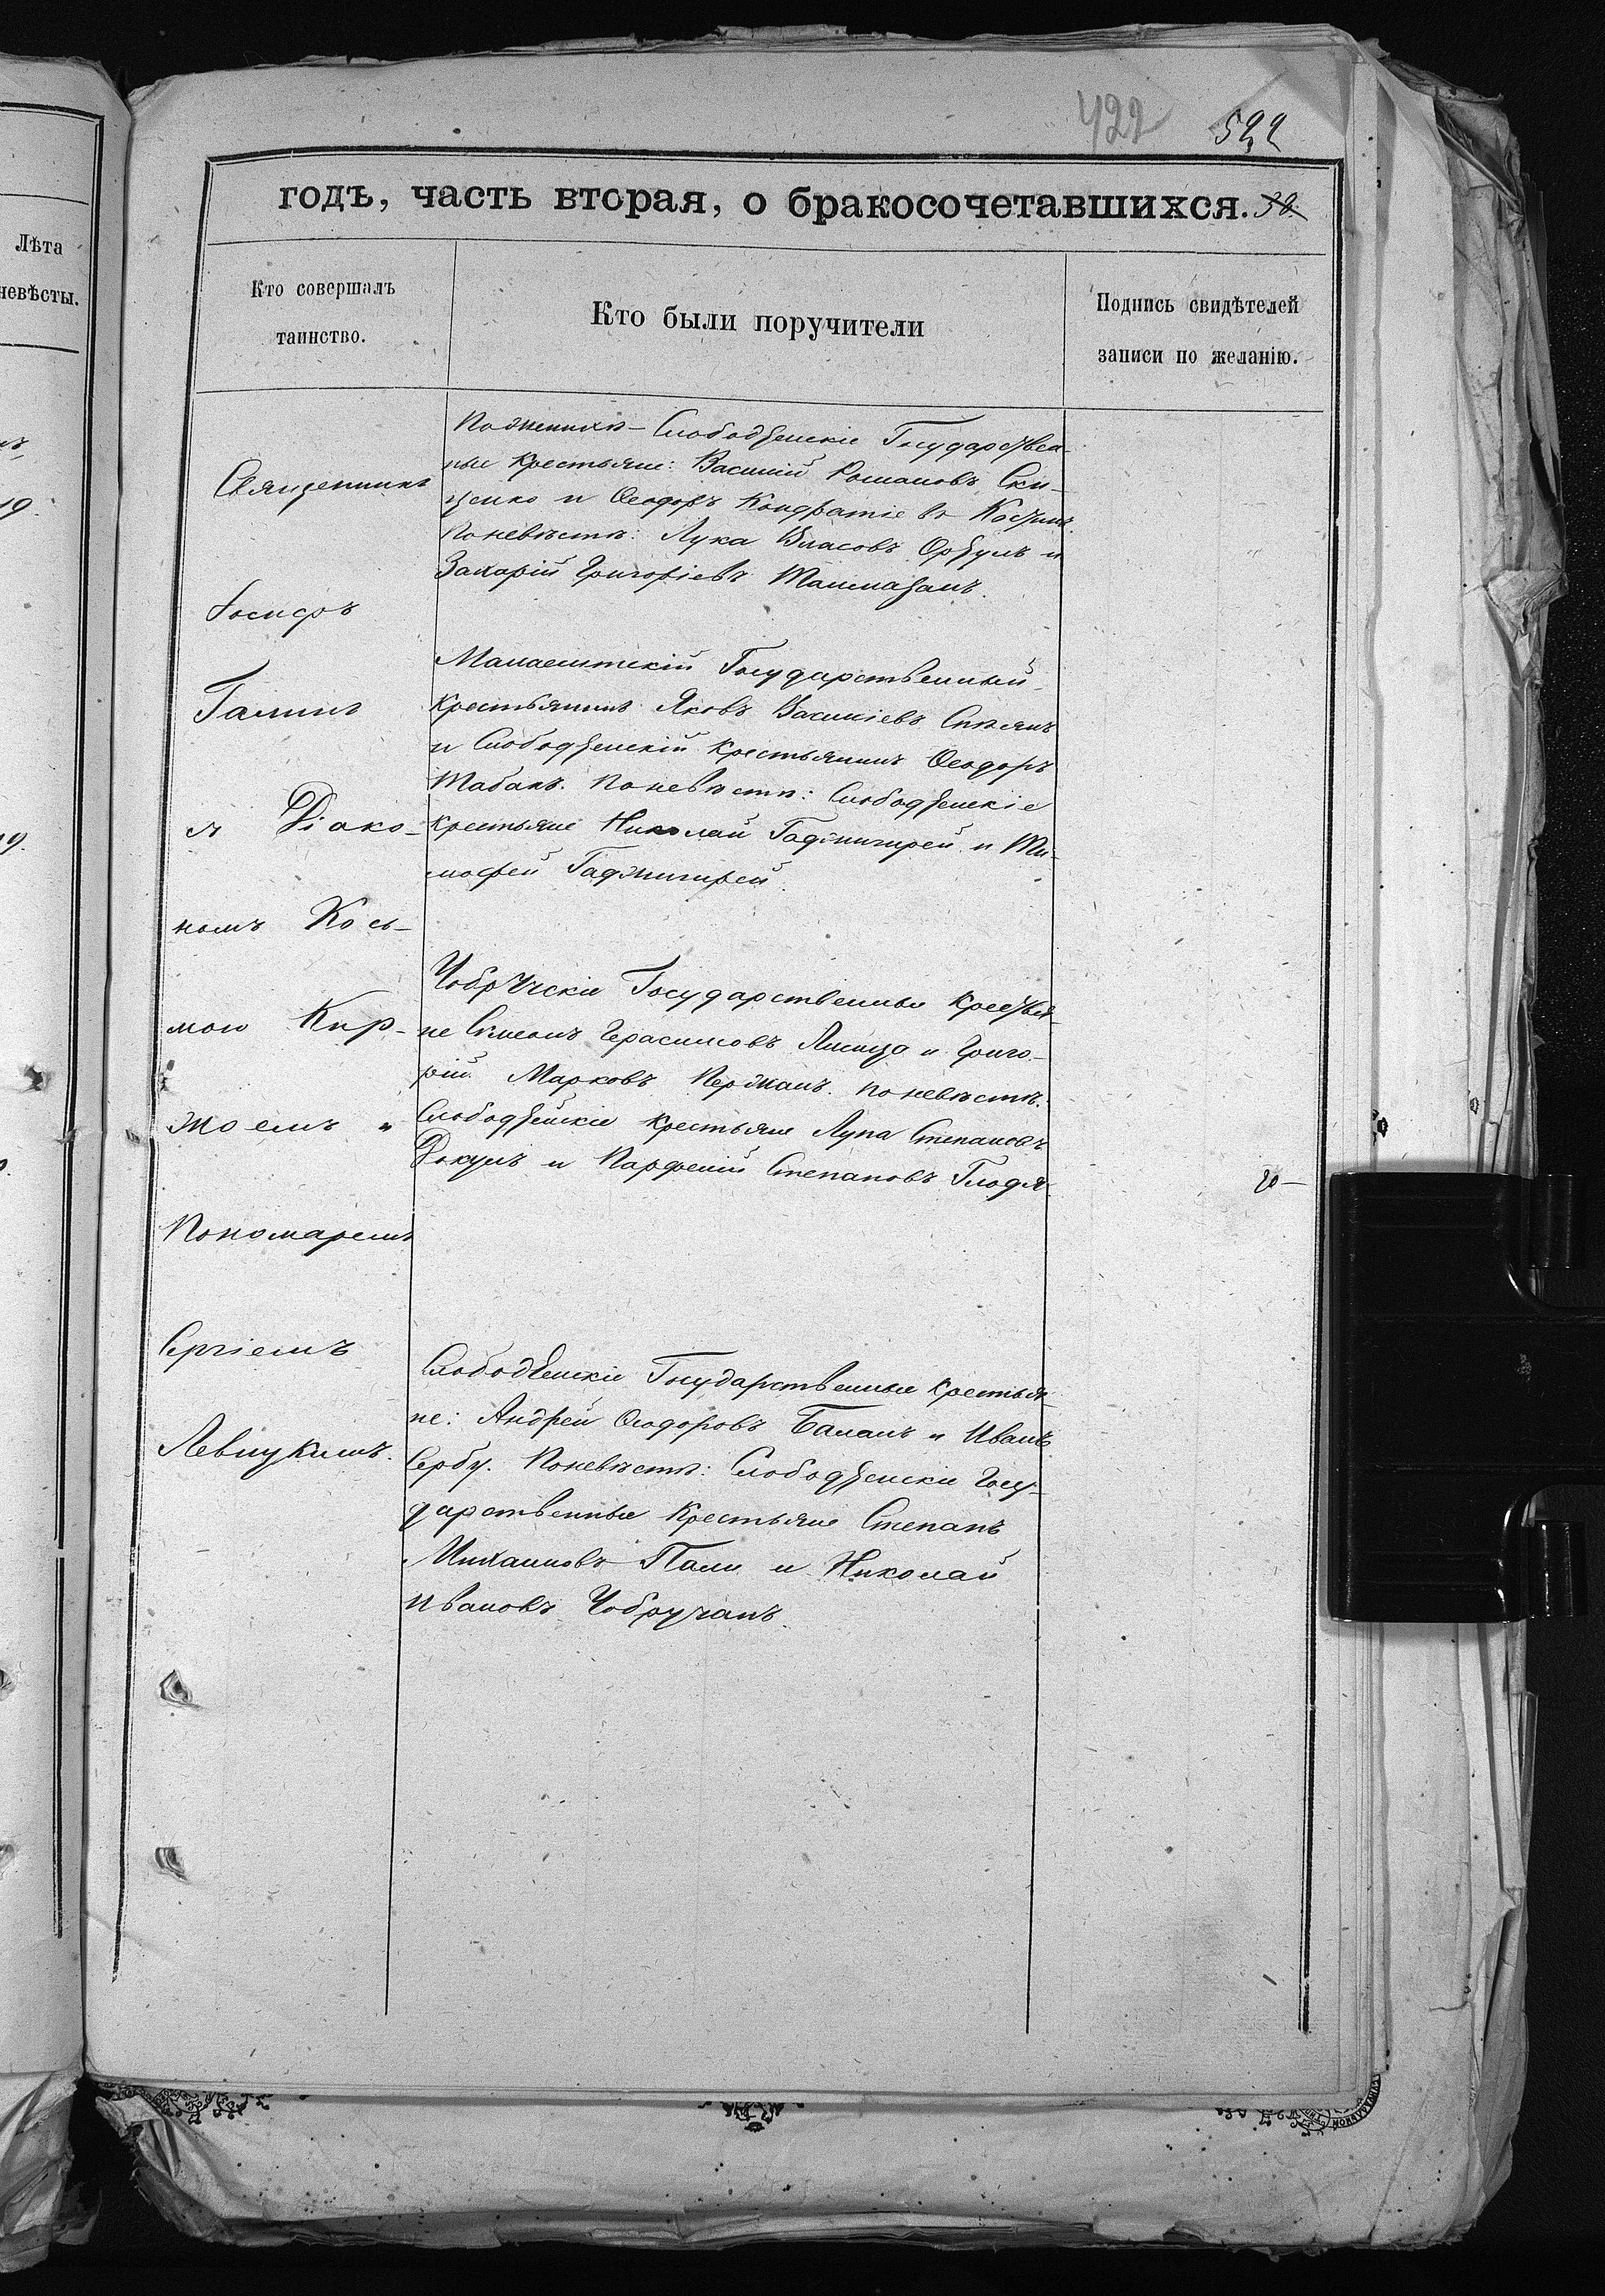 422 522
годъ, часть вторая, о бракосочетавшихся. 30.
Лѣта
невѣсты.
Кто совершалъ
таинство.
Кто были поручители
Подпись свидѣтелей
записи по желанію.
19.
Священникъ
Іосифъ
Галинъ
съ Діако-
номъ Кось-
мою Кир-
жоемъ и
Пономаремъ
Сергіемъ
Левицкимъ.
По женихѣ - Слободзейскіе Государствен-
ные Крестьяне: Василій Романовъ
и Ѳеодоръ Кондратіевъ
По невѣстѣ: Лука Власовъ и
Захарій Григоріевъ
Малаештскій Государственный
Крестьянинъ Яковъ Василіевъ
и Слободзейскій Крестьянинъ Ѳеодоръ
Табакъ. По невѣстѣ: Слободзейскіе
Крестьяне Николай Гаджигирей и Ти-
моѳей Гаджигирей.
Чобручскіе Государственные Крестья-
не Симеонъ Герасимовъ и Григо-
рій Марковъ Пержанъ. По невѣстѣ:
Слободзейскіе Крестьяне Лупа Степановъ
Докулъ и Парфеній Степановъ Глодя
20-
Слободзейскіе Государственные Крестья-
не: Андрей Ѳеодоровъ Баланъ и Иванъ
Сербу. По невѣстѣ: Слободзейскіе Госу-
дарственные Крестьяне Степанъ
Михаиловъ Пали и Николай
Ивановъ Чобручанъ.